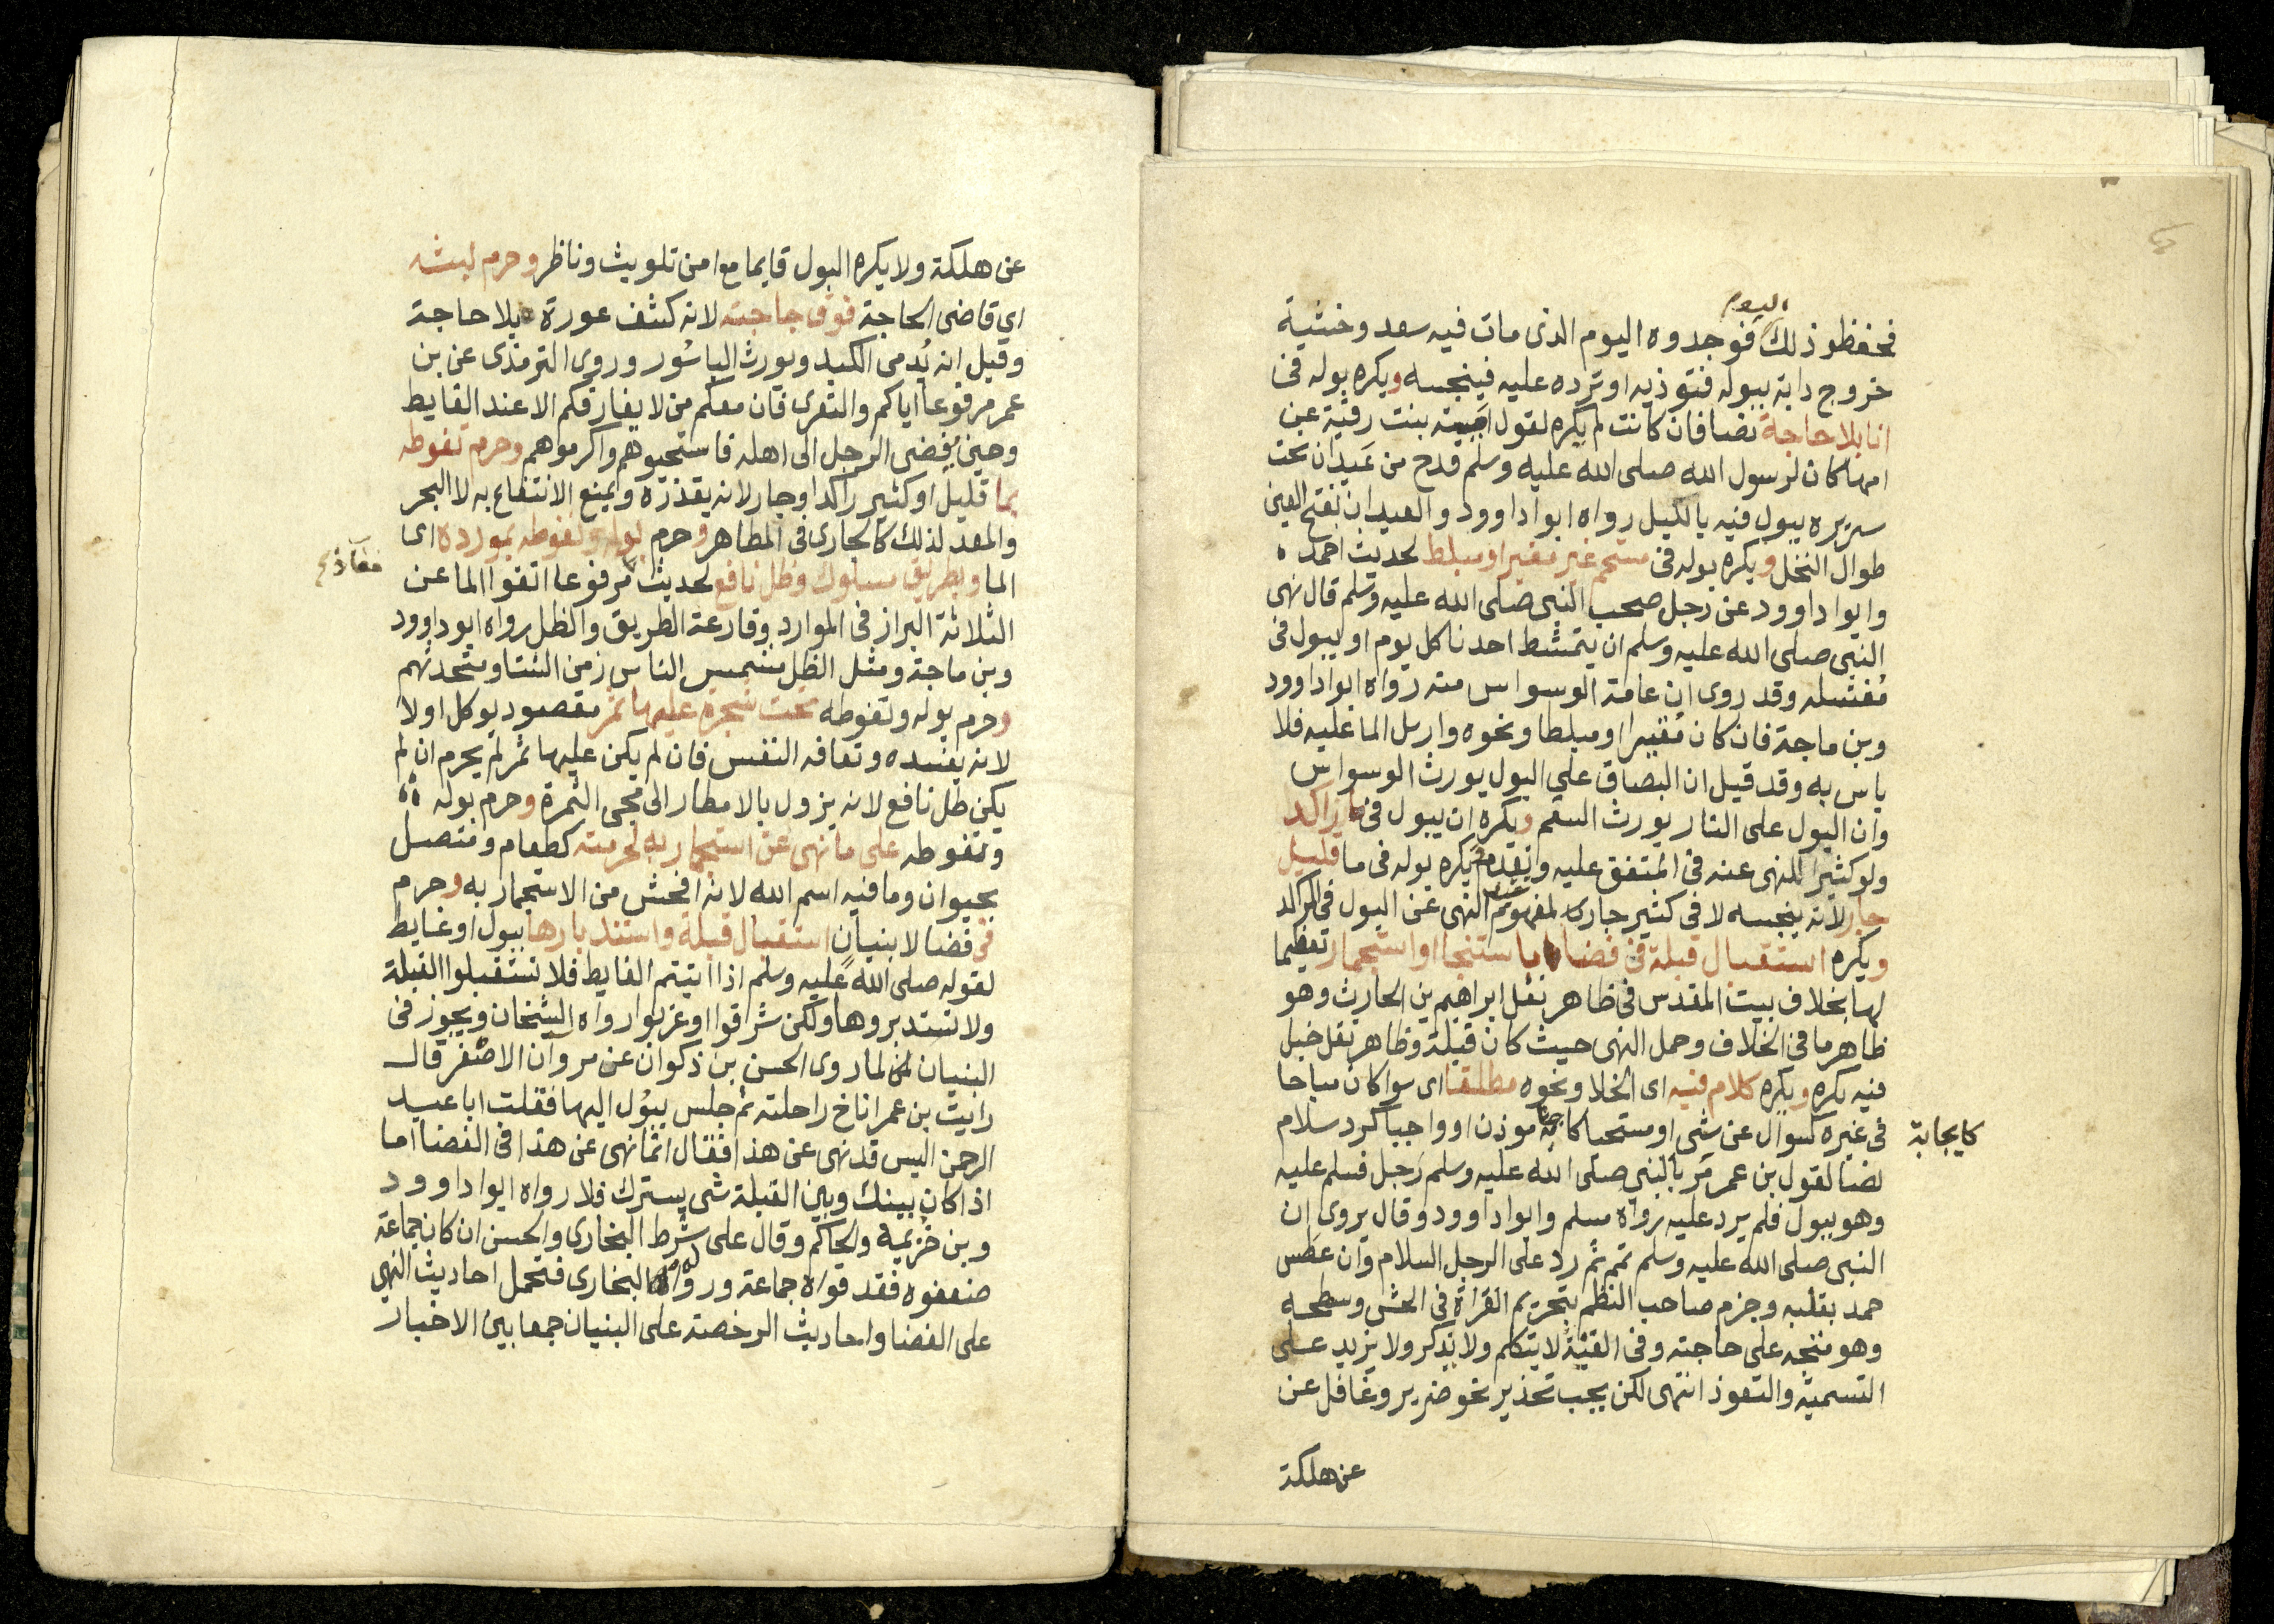 اليوم
فحفظو ذلك فوجدوه اليوم الذى مات فيه سعد وخشية
خروج دابة ببوله فتوذيه او ترده عليه فينجسه ويكره بوله فى
انا بلا حاجة نصا فان كانت لم يكره لقول اميمة بنت رقية عن
امها كان لرسول الله صلى الله عليه وسلم قدح من عَيدان تحت
سريره يبول فيه بالليل رواه ابوا داوود والعيدان بفتح العين
طوال النخل ويكره بوله فى مستحم غير مقير او مبلط لحديث احمد
وابوا داوود عن رجل صحب النبى صلى الله عليه وسلم قال نهى
النبى صلى الله عليه وسلم ان يتمشط احدنا كل يوم او يبول فى
مُغتسله وقد روى ان عامة الوسواس منه رواه ابوا داوود
وبن ماجة فان كان مُقيرا او مبلطا ونحوه وارسل الما عليه فلا
باس به وقد قيل ان البصاق على البول يورث الوسواس
وان البول على النار يورث السقم ويكره ان يبول فى ما راكد
ولو كثيرا للنهى عنه فى المتفق عليه وتقدم ويكره بوله فى ما قليل
جار لانه ينجسه لا فى كثير جار لمفهوم النهى عن البول فى الراكد
ويكره استقبال قبلة فى فضا باستنجا او استجمار تعظيما
لها بخلاف بيت المقدس فى ظاهر نقل ابراهيم بن الحارث وهو
ظاهر ما فى الخلاف وحمل النهى حيث كان قبلة وظاهر نقل حنبل
فيه يكره ويكره كلام فيه اى الخلا ونحوه مطلقا اى سوا كان مباحا
فى غيره كسوال عن شى او مستحبا كاجابة موذن او واجبا كرد سلام
كايجابة
نصا لقول بن عمر مَر بالنبى صلى الله عليه وسلم رَجل فسلم عليه
وهو يبول فلم يرد عليه رواه مسلم وابوا داوود وقال يروى ان
النبى صلى الله عليه وسلم تمم ثم رد على الرجل السلام وان عَطس
حمد بقلبه وجزم صاحب النظم بتحريم القراة فى الحش وسطحه
وهو متجه على حاجته وفى الغنية لا يتكلم ولا يذكر ولا يزيد على
التسمية والتعوذ انتهى لكن يجب تحذير نحو ضرير وغافل عن
عن هلكة
عن هلكة ولا يكره البول قايما مع امن تلويث وناظر وحرم لبثه
اى قاضى الحاجة فوق حاجته لانه كشف عورة بلا حاجة
وقيل انه يُدمى الكبد ويورث الباسُور وروى الترمذى عن بن
عمر مرفوعا اياكم والتعرى فان معكم من لا يفارقكم الا عند الغايط
وحين يفضى الرجل الى اهله فاستحيوهم واكرموهم وحرم تغوطه
بما قليل او كثير راكد او جار لانه يقذره ويمنع الانتفاع به لا البحر
والمعد لذلك كالجارى فى المطاهر وحرم بوله وتغوطه بمورده اى
الما وبطريق مسلوك وظل نافع لحديث مرفوعا اتقوا الملاعن
الثلاثة البراز فى الموارد وقارعة الطريق والظل رواه ابو داوود
وبن ماجة ومثل الظل متشمس الناس زمن الشتا ومتحدثهم
وحرم بوله وتغوطه تحت شجرة عليها ثمر مقصود يوكل اولا
لانه يفسده وتعافه النفس فان لم يكن عليها ثمر لم يحرم ان لم
يكن ظل نافع لانه يزول بالامطار الى مجى الثمرة وحرم بوله
وتغوطه على ما نهى عن استجمار به لحرمته كطعام ومتصل
بحيوان وما فيه اسم الله لانه افحش من الاستجمار به وحرم
فى فضا لا بنيان استقبال قبلة واستدبارها ببول او غايط
لقوله صلى الله عليه وسلم اذا اتيتم الغايط فلا تستقبلوا القبلة
ولا تستدبروها ولكن شرقوا او غربوا رواه الشيخان ويجوز فى
البنيان لما روى الحسن بن ذكوان عن مروان الاصفر قال
رايت بن عمر اناخ راحلته ثم جلس يبُول اليها فقلت ابا عبد
الرحمن اليس قد نهى عن هذا فقال انما نهى عن هذا فى الفضا اما
اذا كان بينك وبين القبلة شى يسترك فلا رواه ابوا داوود
وبن خزيمة والحاكم وقال على شرط البخارى والحسن ان كان جماعة
ضعفوه فقد قواه جماعة وروى له البخارى فتحمل احاديث النهى
على الفضا واحاديث الرخصة على البنيان جمعا بين الاخبار